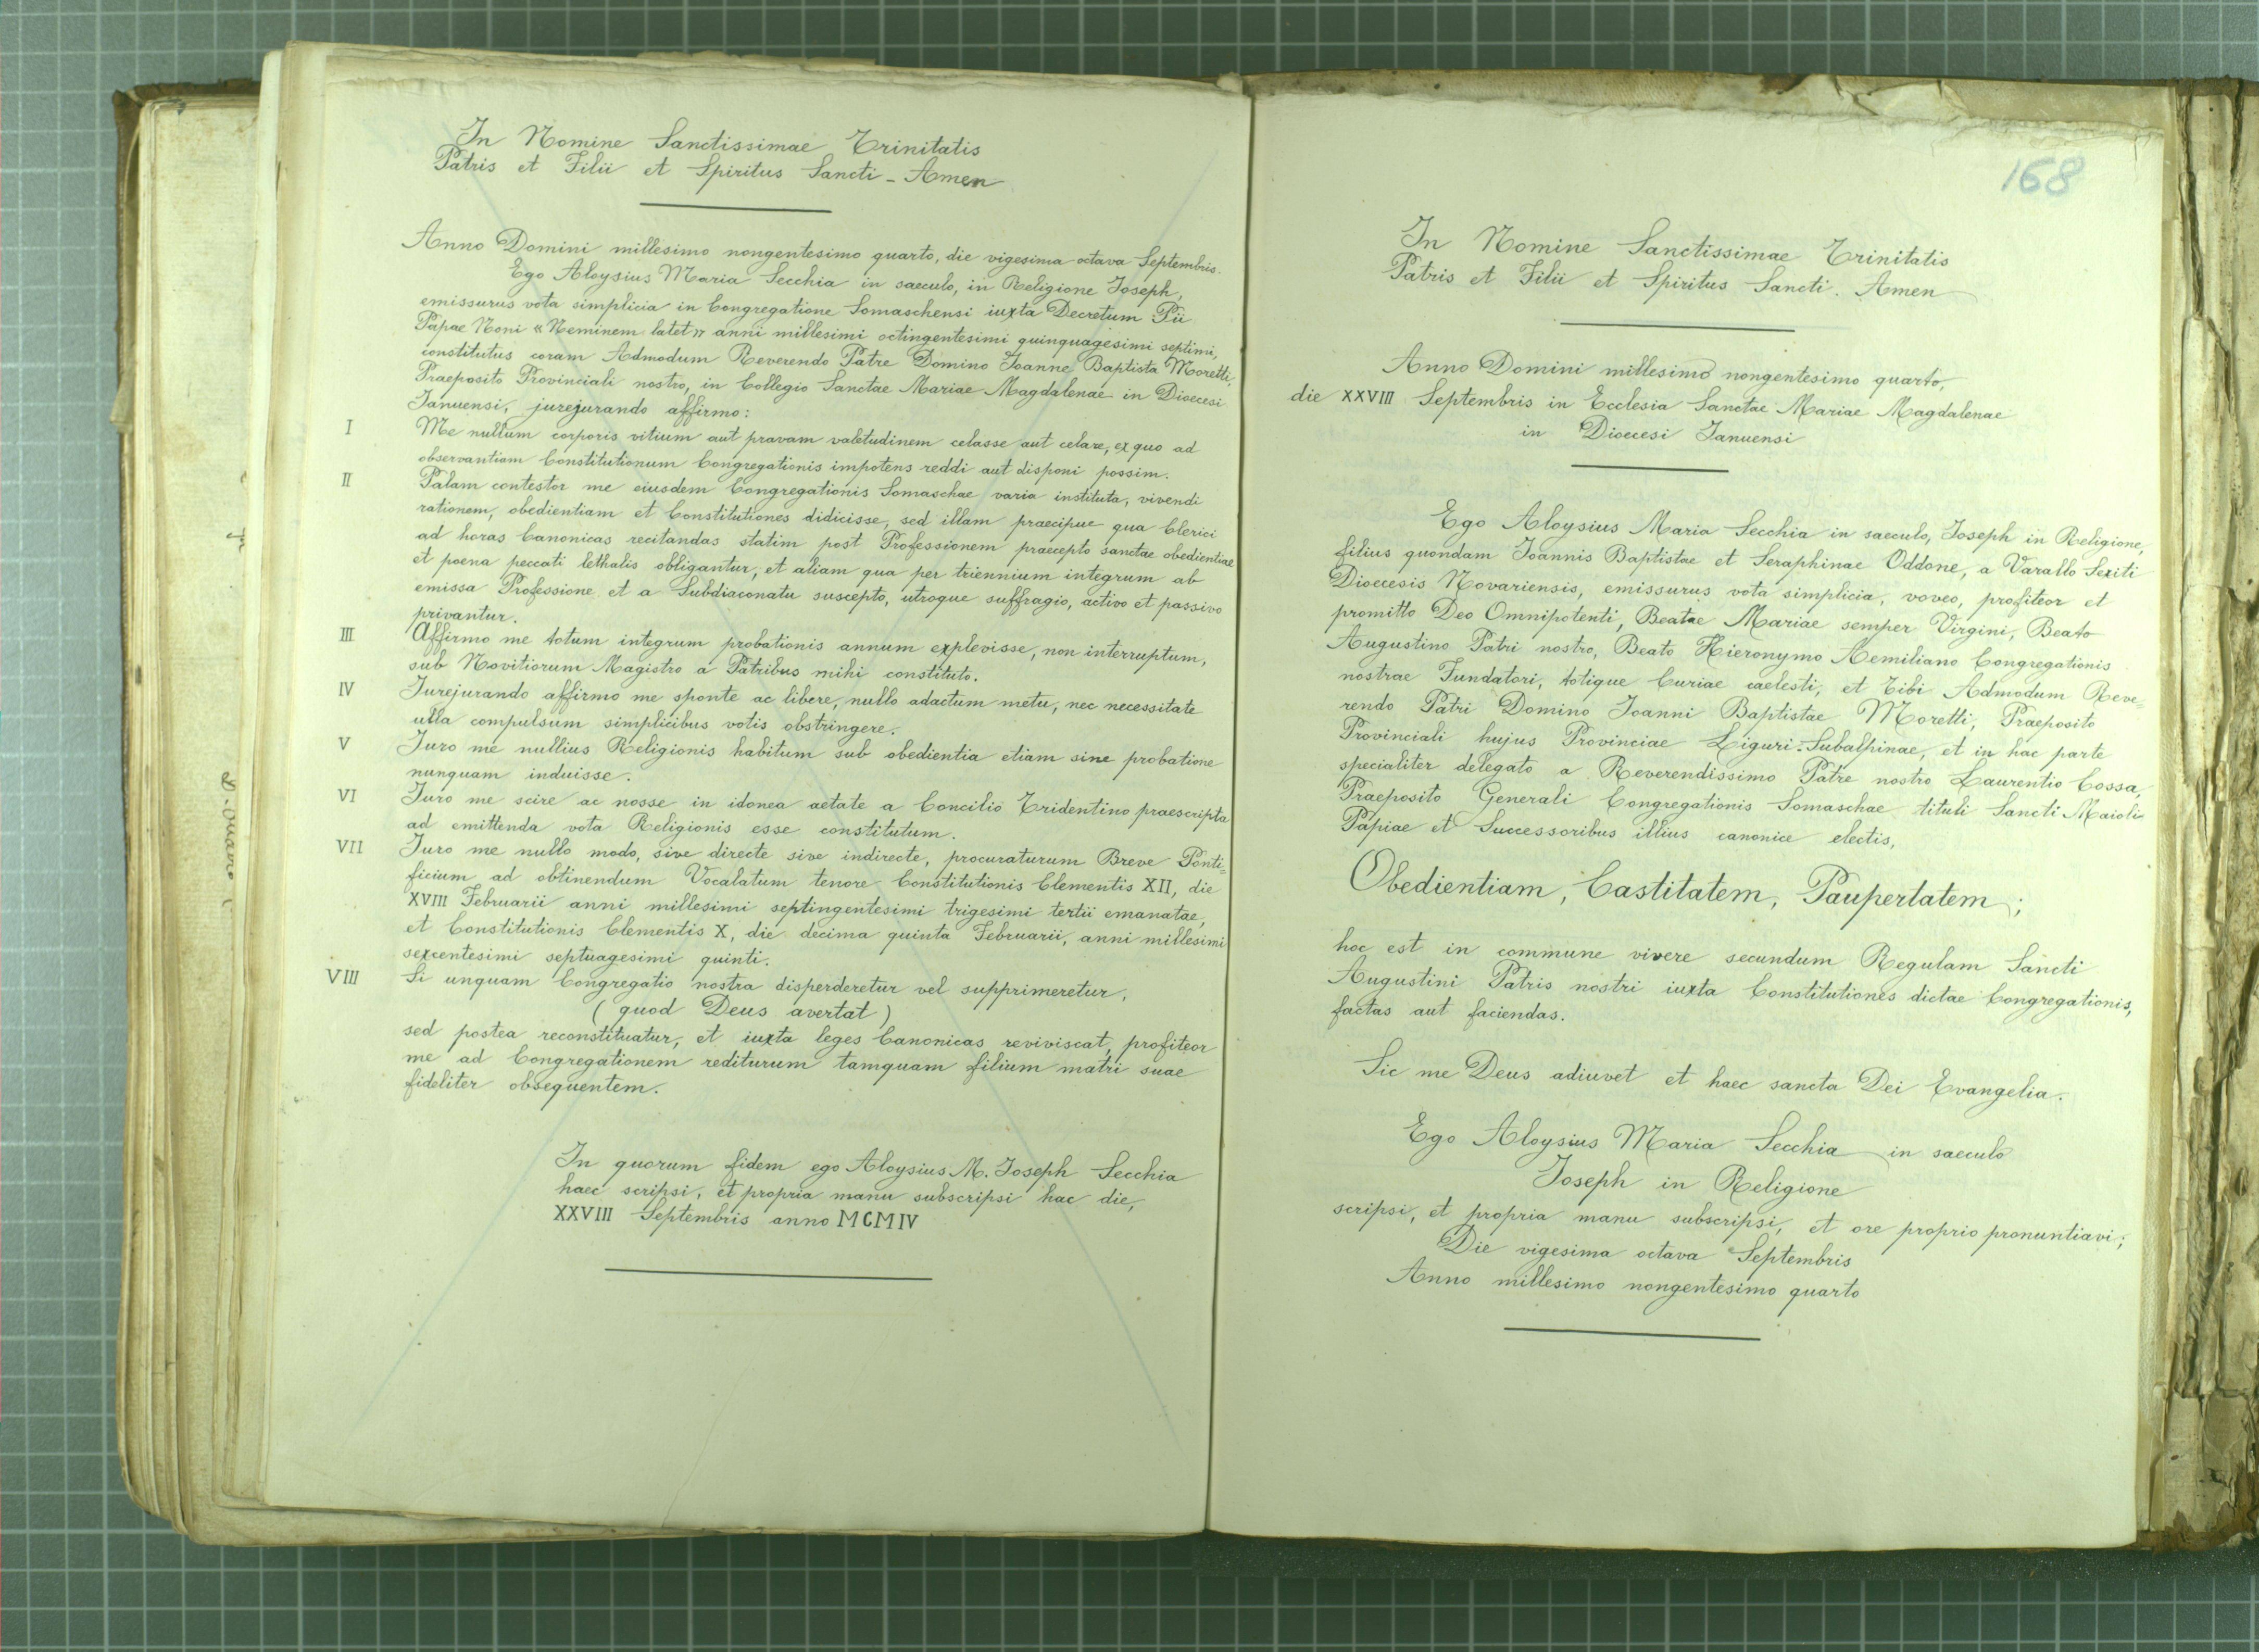 In Nomine Sanctissimae Trinitatis
Patris et Filii et Spiritus Sancti - Amen
Anno Domini millesimo nongentesimo quarto, die vigesima octava Septembris.
Ego Aloysius Maria Secchia in saeculo, in Religione Joseph,
emissurus vota simplicia in Congregatione Somaschensi iuxta Decretum Pii
Papae Noni « Neminem latet » anni millesimi octingentesimi quinquagesimi septimi,
constitutus coram Admodum Reverendo Patre Domino Joanne Baptista Moretti,
Praeposito Provinciali nostro, in Collegio Sanctae Mariae Magdalenae in Dioecesi
Januensi, jurejurando affirmo:
I Me nullum corporis vitium aut pravam valetudinem celasse aut celare, ex quo ad
observantiam Constitutionum Congregationis impotens reddi aut disponi possim.
II Palam contestor me eiusdem Congregationis Somaschae varia instituta, vivendi
rationem, obedientiam et Constitutiones didicisse, sed illam praecipue qua Clerici
ad horas Canonicas recitandas statim post Professionem praecepto sanctae obedientiae
et poena peccati lethalis obligantur, et aliam qua per triennium integrum ab
emissa Professione et a Subdiaconatu suscepto, utroque suffragio, activo et passivo
privantur.
III Affirmo me totum integrum probationis annum explevisse, non interruptum,
sub Novitiorum Magistro a Patribus mihi constituto.
IV Jurejurando affirmo me sponte ac libere, nullo adactum metu, nec necessitate
ulla compulsum simplicibus votis obstringere.
V Juro me nullius Religionis habitum sub obedientia etiam sine probatione
nunquam induisse.
VI Juro me scire ac nosse in idonea aetate a Concilio Tridentino praescripta
ad emittenda vota Religionis esse constitutum.
VII Juro me nullo modo, sive directe sive indirecte, procuraturum Breve Ponti=
ficium ad obtinendum Vocalatum tenore Constitutionis Clementis XII, die
XVIII Februarii anni millesimi septingentesimi trigesimi tertii emanatae,
et Constitutionis Clementis X, die decima quinta Februarii, anni millesimi
sexcentesimi septuagesimi quinti.
VIII Si unquam Congregatio nostra disperderetur vel supprimeretur,
(quod Deus avertat)
sed postea reconstituatur, et iuxta leges Canonicas reviviscat, profiteor
me ad Congregationem rediturum tamquam filium matri suae
fideliter obsequentem.
In quorum fidem ego Aloysius M. Joseph Secchia
haec scripsi, et propria manu subscripsi hac die,
XXVIII Septembris anno MCMIV
168
In Nomine Sanctissimae Trinitatis
Patris et Filii et Spiritus Sancti. Amen
Anno Domini millesimo nongentesimo quarto,
die XXVIII Septembris in Ecclesia Sanctae Mariae Magdalenae
in Dioecesi Januensi
Ego Aloysius Maria Secchia in saeculo, Joseph in Religione,
filius quondam Joannis Baptistae et Seraphinae Oddone, a Varallo Sexiti
Dioecesis Novariensis, emissurus vota simplicia, voveo, profiteor et
promitto Deo Omnipotenti, Beatae Mariae semper Virgini, Beato
Augustino Patri nostro, Beato Hieronymo Aemiliano Congregationis
nostrae Fundatori, totique Curiae caelesti, et Tibi Admodum Reve=
rendo Patri Domino Joanni Baptistae Moretti, Praeposito
Provinciali hujus Provinciae Liguri-Subalpinae, et in hac parte
specialiter delegato a Reverendissimo Patre nostro Laurentio Cossa,
Praeposito Generali Congregationis Somaschae tituli Sancti Maioli
Papiae et Successoribus illius canonice electis,
Obedientiam, Castitatem, Paupertatem;
hoc est in commune vivere secundum Regulam Sancti
Augustini Patris nostri iuxta Constitutiones dictae Congregationis,
factas aut faciendas.
Sic me Deus adiuvet et haec sancta Dei Evangelia.
Ego Aloysius Maria Secchia in saeculo
Joseph in Religione
scripsi, et propria manu subscripsi, et ore proprio pronuntiavi;
Die vigesima octava Septembris
Anno millesimo nongentesimo quarto